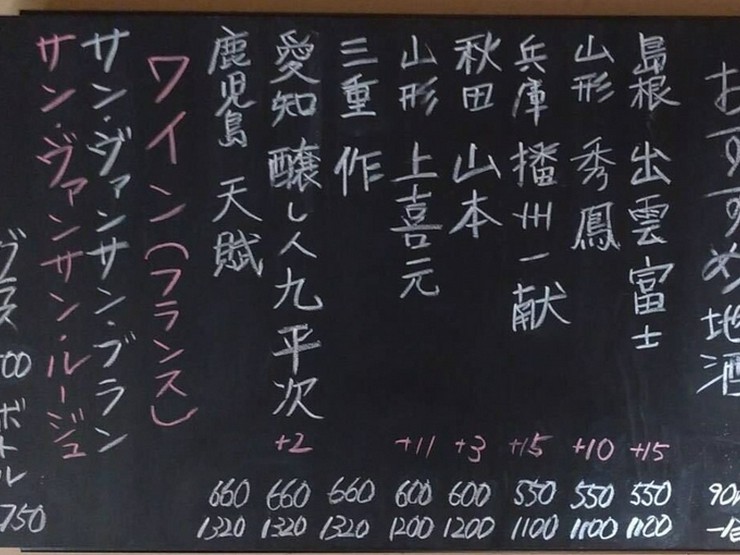 おすすめ地酒
島根 出雲富士 +15 550 1100
山形 秀鳳 +10 550 1100
兵庫 播州一献 +15 550 1100
秋田 山本 +3 600 1200
山形 上喜元 +11 600 1200
三重 作 660 1320
愛知 醸し人九平次 +2 660 1320
鹿児島 天賦 660 1320
ワイン(フランス)
サン・ヴァンサン・ブラン
サン・ヴァンサン・ルージュ